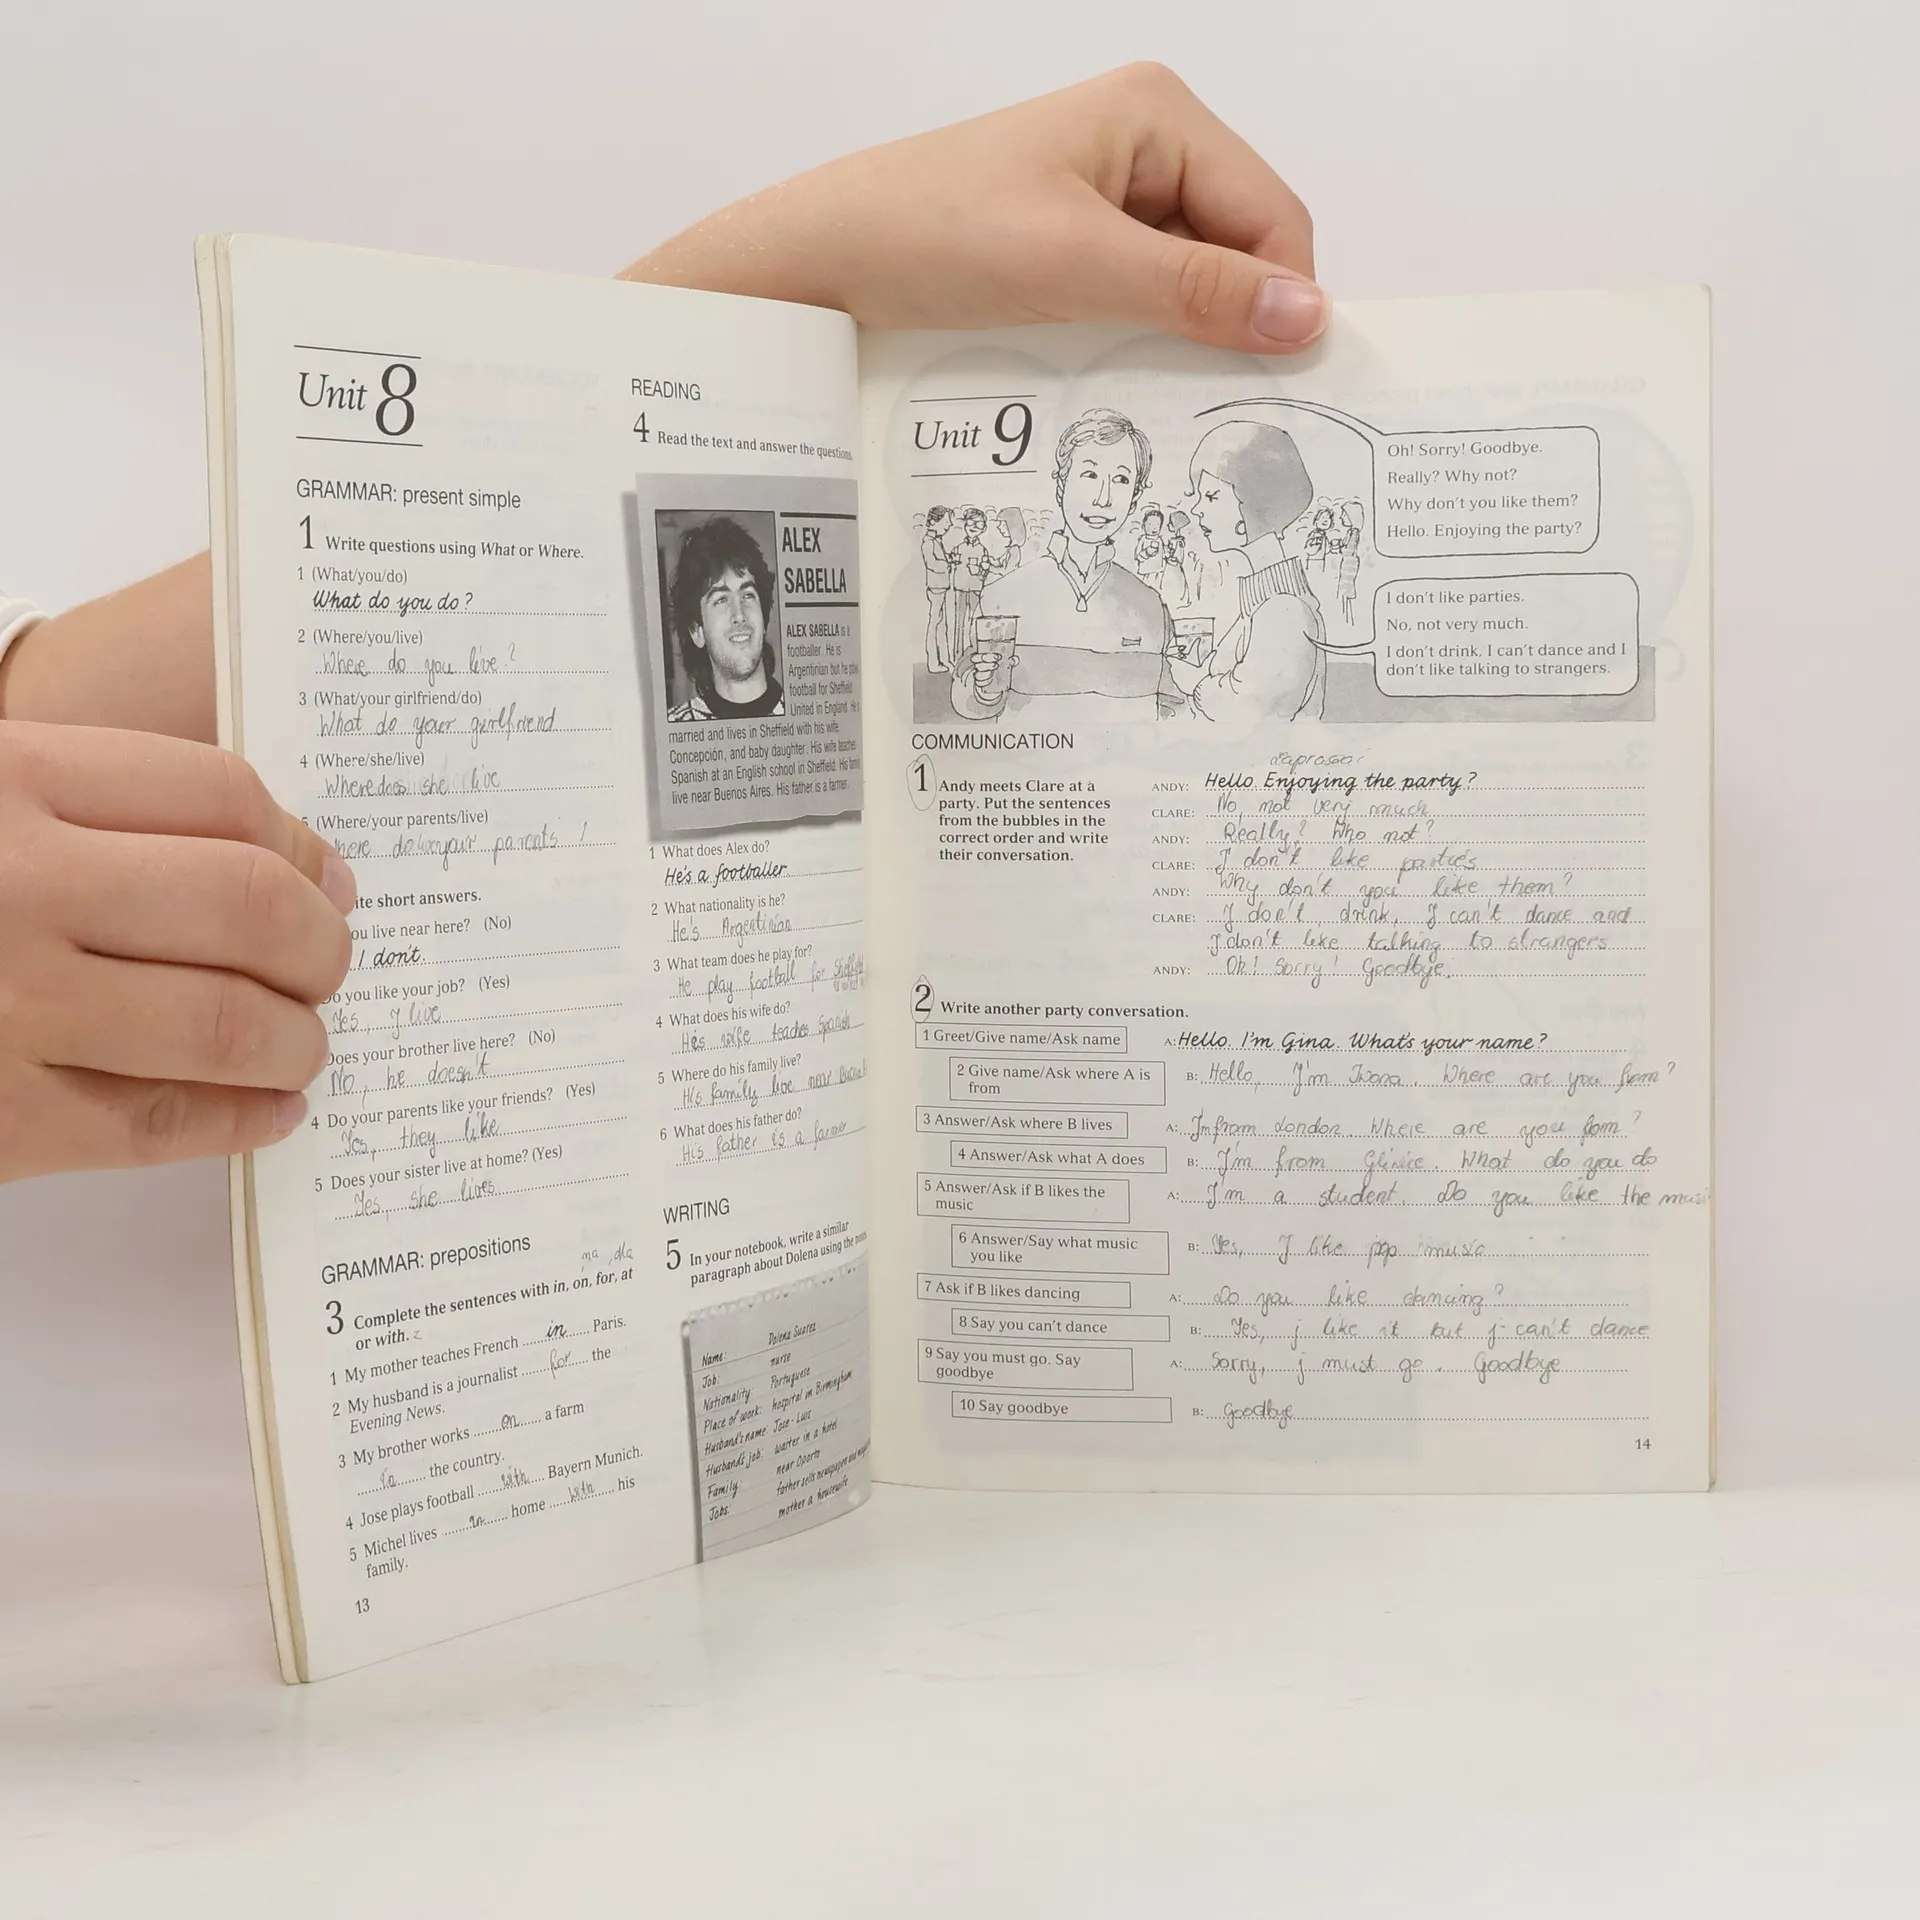 Unit 8
GRAMMAR: present simple
1 Write questions using What or Where.
1 (What/you/do)
What do you do?
2 (Where/you/live)
Where do you live?
3 (What/your girlfriend/do)
What do your girlfriend
4 (Where/she/live)
Where does she live
5 (Where/your parents/live)
here do your parents
ite short answers.
ou live near here? (No)
I don't.
Do you like your job? (Yes)
Yes, I live
Does your brother live here? (No)
No, he doesn't
4 Do your parents like your friends? (Yes)
Yes, they like
5 Does your sister live at home? (Yes)
Yes, she lives
GRAMMAR: prepositions
na, dla
3 Complete the sentences with in, on, for, at
or with. z
1 My mother teaches French in Paris.
2 My husband is a journalist for the
Evening News.
3 My brother works on a farm
in the country.
4 Jose plays football with Bayern Munich.
5 Michel lives in home with his
family.
13
READING
4 Read the text and answer the questions.
ALEX
SABELLA
ALEX SABELLA is a
footballer. He is
Argentinian but he
football for Sheffield
United in England. He
married and lives in Sheffield with his wife,
Concepción, and baby daughter. His wife teaches
Spanish at an English school in Sheffield. His family
live near Buenos Aires. His father is a farmer.
1 What does Alex do?
He's a footballer.
2 What nationality is he?
He's Argentinian
3 What team does he play for?
He play football for
4 What does his wife do?
His wife teaches Spanish
5 Where do his family live?
His family live near
6 What does his father do?
His father is a farmer
WRITING
5 In your notebook, write a similar
paragraph about Dolena using the notes
Name: Dolena Suarez
Job: nurse
Nationality: Portuguese
Place of work: hospital in Birmingham
Husband's name: Jose-Luis
Husband's job: waiter in a hotel
Family: near Oporto
Jobs: father sells newspapers and
mother a housewife
Unit 9
Oh! Sorry! Goodbye.
Really? Why not?
Why don't you like them?
Hello. Enjoying the party?
I don't like parties.
No, not very much.
I don't drink, I can't dance and I
don't like talking to strangers.
COMMUNICATION
1 Andy meets Clare at a
party. Put the sentences
from the bubbles in the
correct order and write
their conversation.
ANDY: Hello. Enjoying the party?
CLARE: No, not very much
ANDY: Really? Who not?
CLARE: I don't like parties
ANDY: Why don't you like them?
CLARE: I don't, drink, I can't dance and
I don't like talking to strangers
ANDY: Oh! Sorry! Goodbye.
2 Write another party conversation.
1 Greet/Give name/Ask name
A: Hello. I'm Gina. What's your name?
2 Give name/Ask where A is
from
B: Hello, I'm Iwona. Where are you from?
3 Answer/Ask where B lives
A: I'm from London. Where are you from?
4 Answer/Ask what A does
B: I'm from Gliwice. What do you do
5 Answer/Ask if B likes the
music
A: I'm a student. Do you like the musi
6 Answer/Say what music
you like
B: Yes, I like pop music
7 Ask if B likes dancing
A: Do you like dancing?
8 Say you can't dance
B: Yes, j like it but j can't dance
9 Say you must go. Say
goodbye
A: Sorry, j must go. Goodbye
10 Say goodbye
B: Goodbye
14